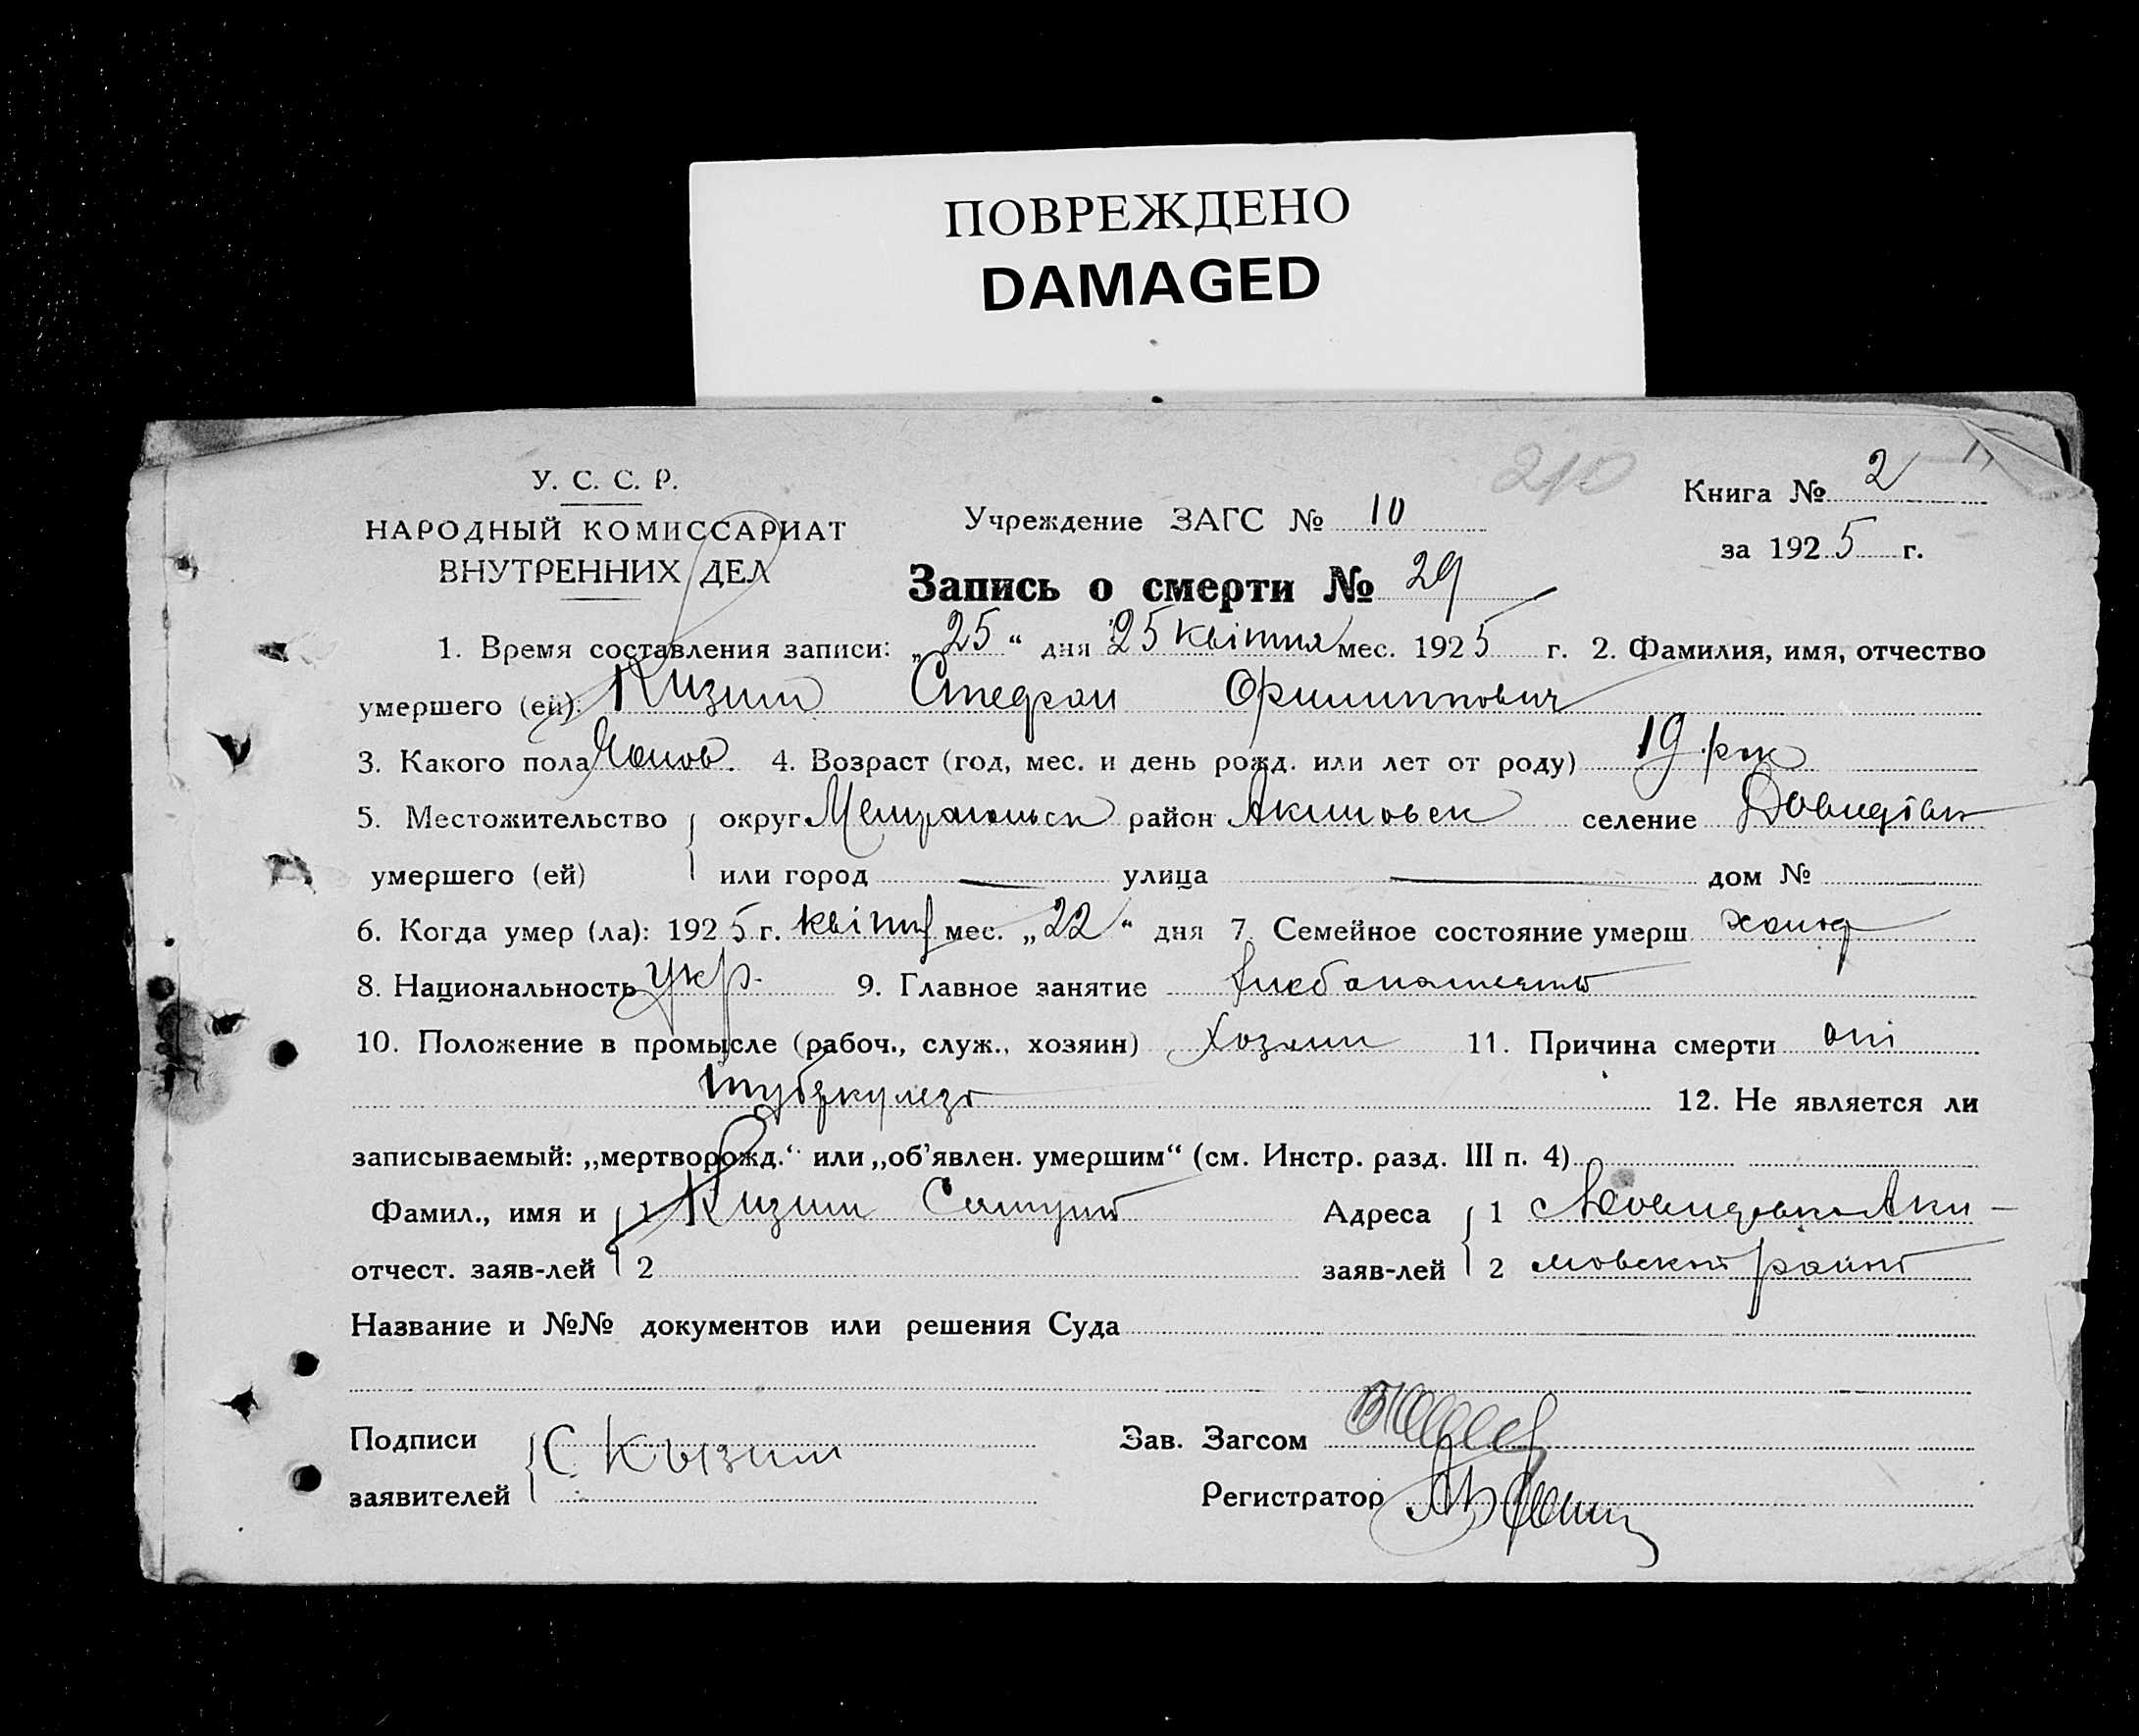 ПОВРЕЖДЕНО
DAMAGED
210
У. С. С. Р.
НАРОДНЫЙ КОМИССАРИАТ
ВНУТРЕННИХ ДЕЛ
Учреждение ЗАГС № 10
Книга № 2
за 1925 г.
Запись о смерти № 29
1. Время составления записи: „25“ дня 25 квітня мес. 1925 г. 2. Фамилия, имя, отчество
умершего (ей): Кизим Стефан Филиппович
3. Какого пола Чолов. 4. Возраст (год, мес. и день рожд. или лет от роду) 19 рок
5. Местожительство округ район Акимовск селение
умершего (ей) или город — улица — дом №
6. Когда умер (ла): 1925 г. квітн мес. „22“ дня 7. Семейное состояние умерш.
8. Национальность укр. 9. Главное занятие
10. Положение в промысле (рабоч., служ., хозяин) Хозяин 11. Причина смерти
туберкулезо
12. Не является ли
записываемый: „мертворожд.“ или „об’явлен. умершим“ (см. Инстр. разд. III п. 4)
Фамил., имя и 1 Кизим
Адреса 1 Аки-
отчест. заяв-лей 2
заяв-лей 2 мовской
Название и №№ документов или решения Суда
Подписи С Кызим
Зав. Загсом
заявителей
Регистратор